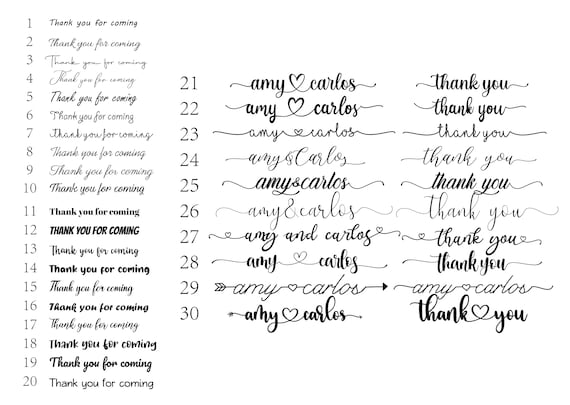 1 Thank you for coming
2 Thank you for coming
3 Thank you for coming
4 Thank you for coming
5 Thank you for coming
6 Thank you for coming
7 Thank you for coming
8 Thank you for coming
9 Thank you for coming
10 Thank you for coming
11 Thank you for coming
12 THANK YOU FOR COMING
13 Thank you for coming
14 Thank you for coming
15 Thank you for coming
16 Thank you for coming
17 Thank you for coming
18 Thank you for coming
19 Thank you for coming
20 Thank you for coming
21 amy carlos thank you
22 amy carlos thank you
23 amy carlos thank you
24 amy&Carlos thank you
25 amy&carlos thank you
26 amy&carlos thank you
27 amy and carlos thank you
28 amy carlos thank you
29 amy carlos amy carlos
30 amy carlos thank you